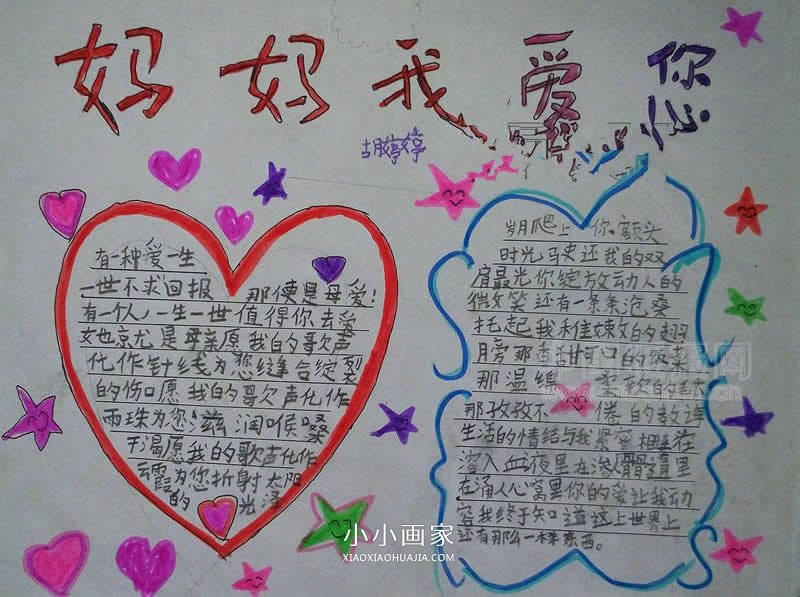 妈妈我爱您
胡婷婷
有一种爱一生
一世不求回报 那便是母爱!
有一个人,一生一世值得你去爱
她也就是母亲愿我的歌声
化作针线为您缝合绽裂
的伤口愿我的歌声化作
雨珠为您滋润喉嗓
干渴愿我的歌声化作
云霞为您折射太阳
的 光泽
岁月爬上 你额头
时光 还我的双
肩最光你绽放动人的
微笑还有一条条沧桑
托起我稚嫩的翅
膀那香甜可口的饭菜
那温绵 柔软的
那孜孜不 倦的教诲
生活的情结与我紧密相连在
溶入血液里在深 里
在涌人心窝里你的爱让我动
容我终于知道这上世界上
还有那么一样东西。
小小画家
XIAOXIAOHUAJIA.COM